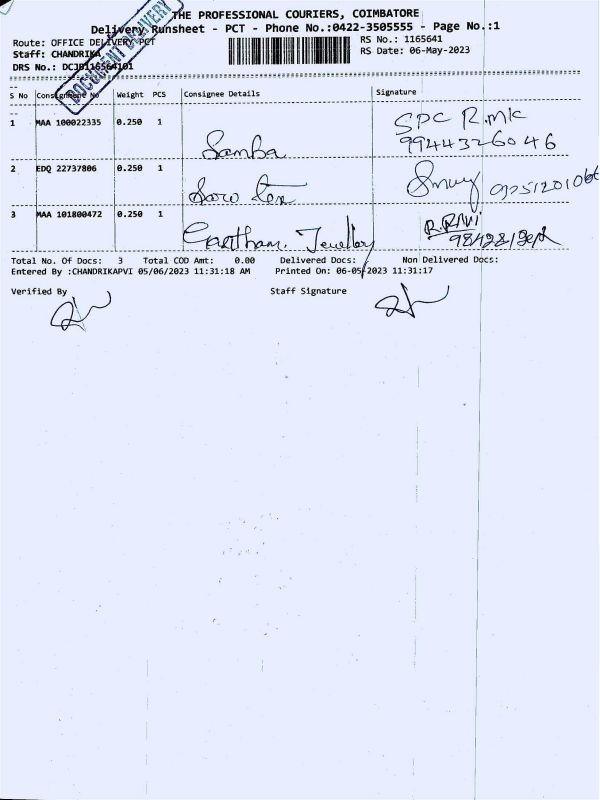 THE PROFESSIONAL COURIERS, COIMBATORE
Delivery Runsheet - PCT - Phone No.:0422-3505555 - Page No.:1
Route: OFFICE DELIVERY PCT
RS No.: 1165641
Staff: CHANDRIKA
RS Date: 06-May-2023
DRS No.:
DOCUMENT DELIVERY
S No Consignment No Weight PCS Consignee Details Signature
1 MAA 100022335 0.250 1 Samba SPC R.mk
9944326046
2 EDQ 22737806 0.250 1 Saro Tex
3 MAA 101800472 0.250 1 Jewellery R.RAVI
Total No. Of Docs: 3 Total COD Amt: 0.00 Delivered Docs: Non Delivered Docs:
Entered By :CHANDRIKAPVI 05/06/2023 11:31:18 AM Printed On: 06-05-2023 11:31:17
Verified By Staff Signature